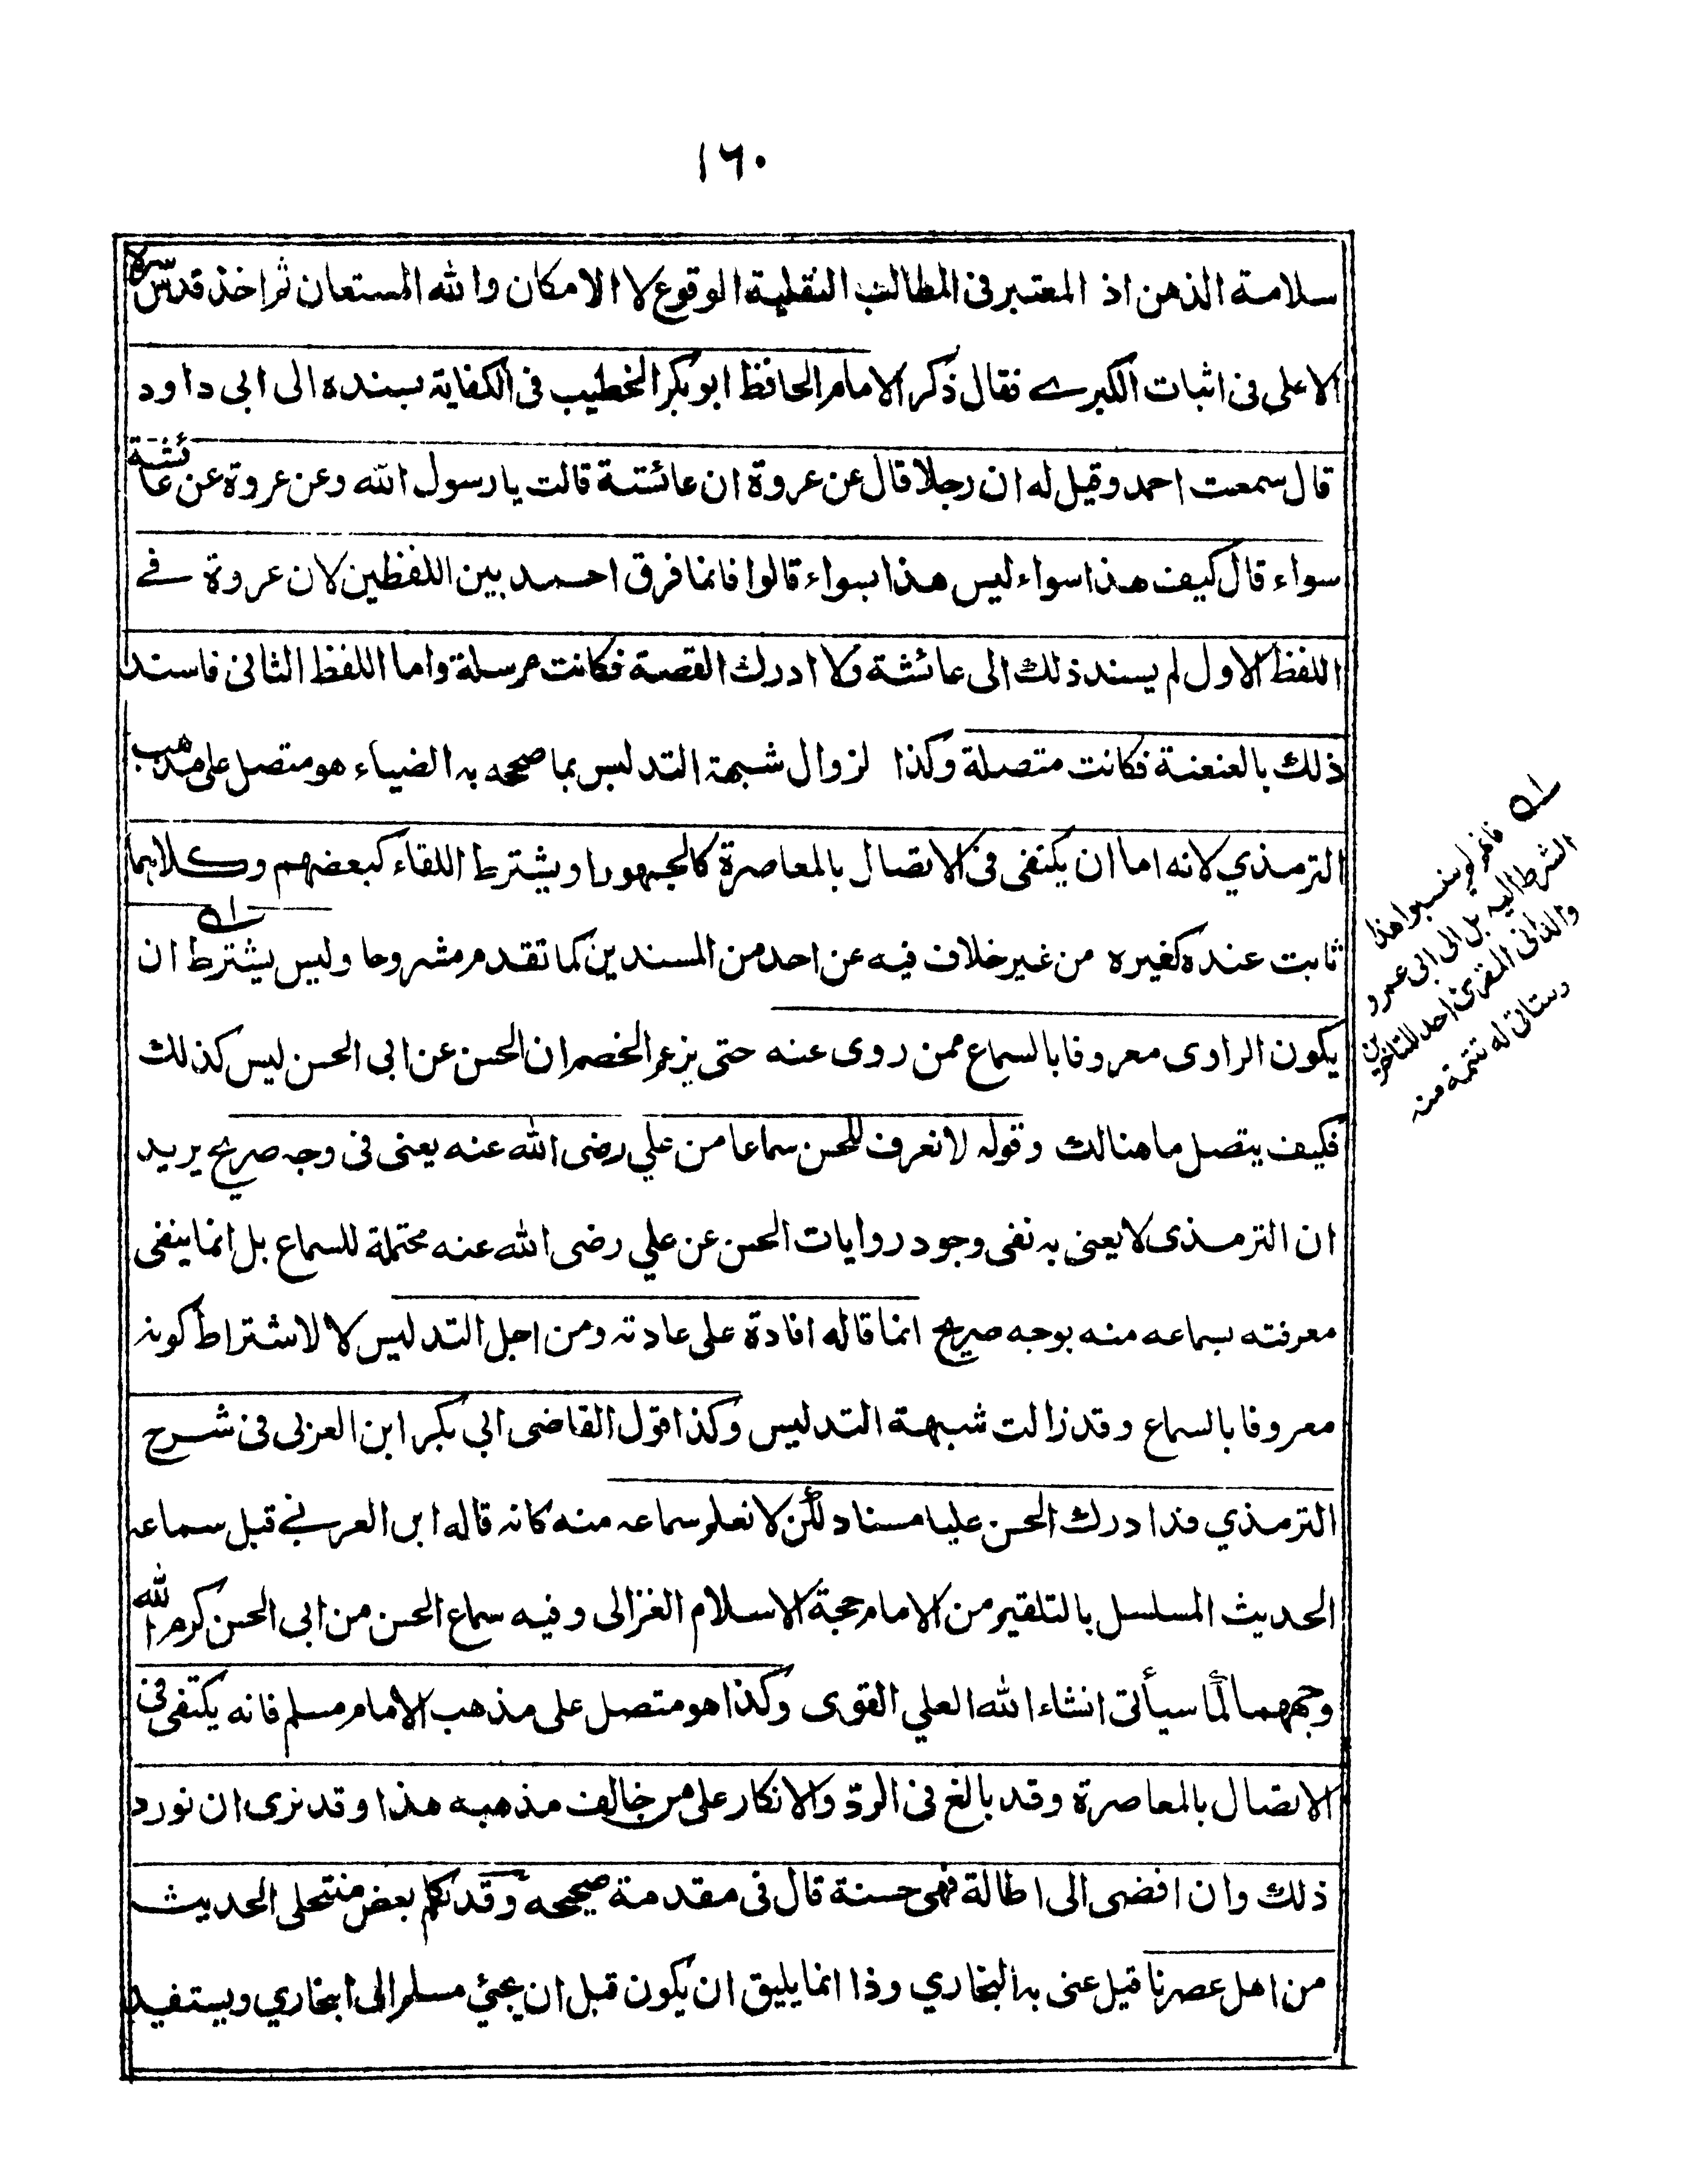 ١٦٠
سلامة الذهن اذ المعتبر فى المطالب النقلية الوقوع لا الامكان والله المستعان ثم اخذ قدس سره
الاعلى فى اثبات الكبرے فقال ذكر الامام الحافظ ابو بكر الخطيب فى الكفاية بسنده الى ابى داود
قال سمعت احمد وقيل له ان رجلا قال عن عروة ان عائشة قالت يا رسول الله وعن عروة عن عائشة
سواء قال كيف هذا سواء ليس هذا بسواء قالوا فانما فرق احمد بين اللفظين لان عروة فے
اللفظ الاول لم يسند ذلك الى عائشة ولا ادرك القصة فكانت مرسلة واما اللفظ الثانى فاسند
ذلك بالعنعنة فكانت متصلة وكذا لزوال شبهة التدليس بما صححه به الضياء هو متصل على مذهب
الترمذي لانه اما ان يكتفى فى الاتصال بالمعاصرة كالجمهور او يشترط اللقاء كبعضهم وكلاهما
ثابت عنده كغيره من غير خلاف فيه عن احد من المسندين كما تقدم مشروحا وليس يشترط ان
يكون الراوى معروفا بالسماع ممن روى عنه حتى يزعم الخصم ان الحسن عن ابى الحسن ليس كذلك
فكيف يتصل ما هنالك وقوله لا نعرف للحسن سماعا من علي رضى الله عنه يعنى فى وجه صريح يريد
ان الترمذى لا يعنى به نفى وجود روايات الحسن عن علي رضى الله عنه محتملة للسماع بل انما ينفى
معرفته بسماعه منه بوجه صريح انما قاله افادة على عادته ومن اجل التدليس لا لاشتراط كونه
معروفا بالسماع وقد زالت شبهة التدليس وكذا قول القاضى ابي بكر ابن العربى فى شرح
الترمذي قد ادرك الحسن عليا مسنا ولكن لا نعلم سماعه منه كانه قاله ابن العربے قبل سماعه
الحديث المسلسل بالتلقيم من الامام حجة الاسلام الغزالى وفيه سماع الحسن من ابى الحسن كرم الله
وجههما لما سيأتى انشاء الله العلي القوى وكذا هو متصل على مذهب الامام مسلم فانه يكتفى فى
الاتصال بالمعاصرة وقد بالغ فى الردّ والانكار على من خالف مذهبه هذا وقد نرى ان نورد
ذلك وان افضى الى اطالة فهى حسنة قال فى مقدمة صحيحه وقد تكلم بعض منتحلى الحديث
من اهل عصرنا قيل عنى به البخاري وذا انما يليق ان يكون قبل ان يجئ مسلم الى البخاري ويستفيد
فانهم لم ينسبوا هذا
الشرط اليه بل الى ابى عمرو
والدانى المقرئ احد المتاخرين
وستاتى له تتمة منه